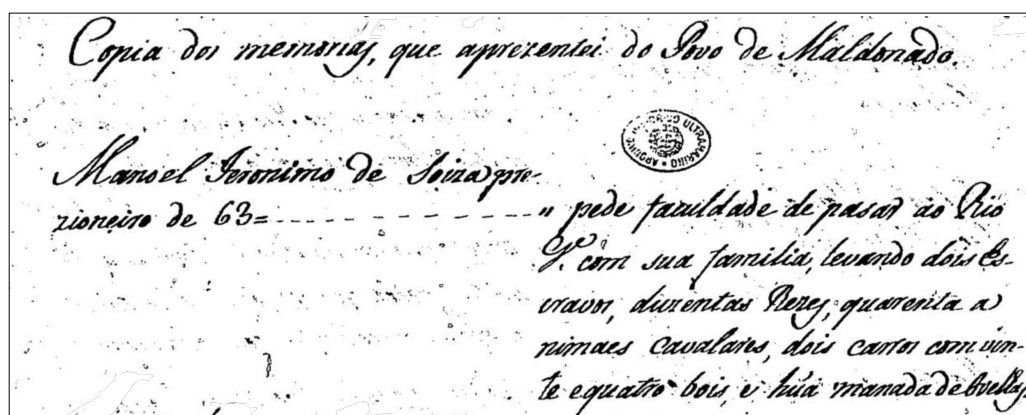 Copia dos memorias, que aprezentei do Povo de Maldonado.
ARQUIVO HISTORICO ULTRAMARINO
Manoel Jeronimo de Soiza pre-
zioneiro de 63= - - - - - - - - - - - - - - -
" pede faculdade de pasar ao Rio
Gᵉ. com sua familia, levando dois Es-
cravos, duzentas Rezes, quarenta a
nimaes Cavalares, dois carros com vin-
te e quatro bois, e hũa manada de Ovelhas,